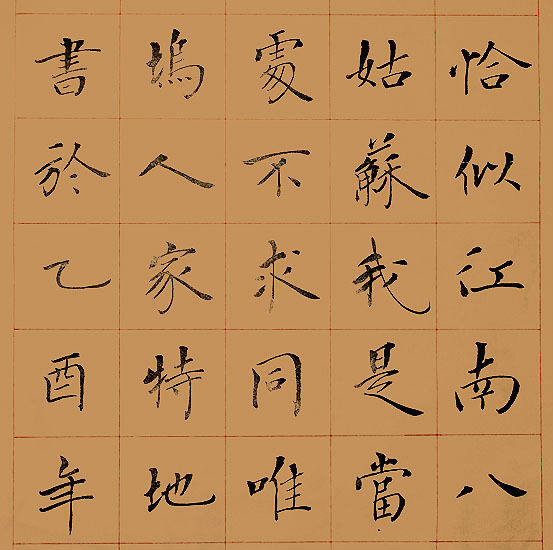 恰似江南八
姑蘇我是當
處不求同唯
塢人家特地
書於乙酉年